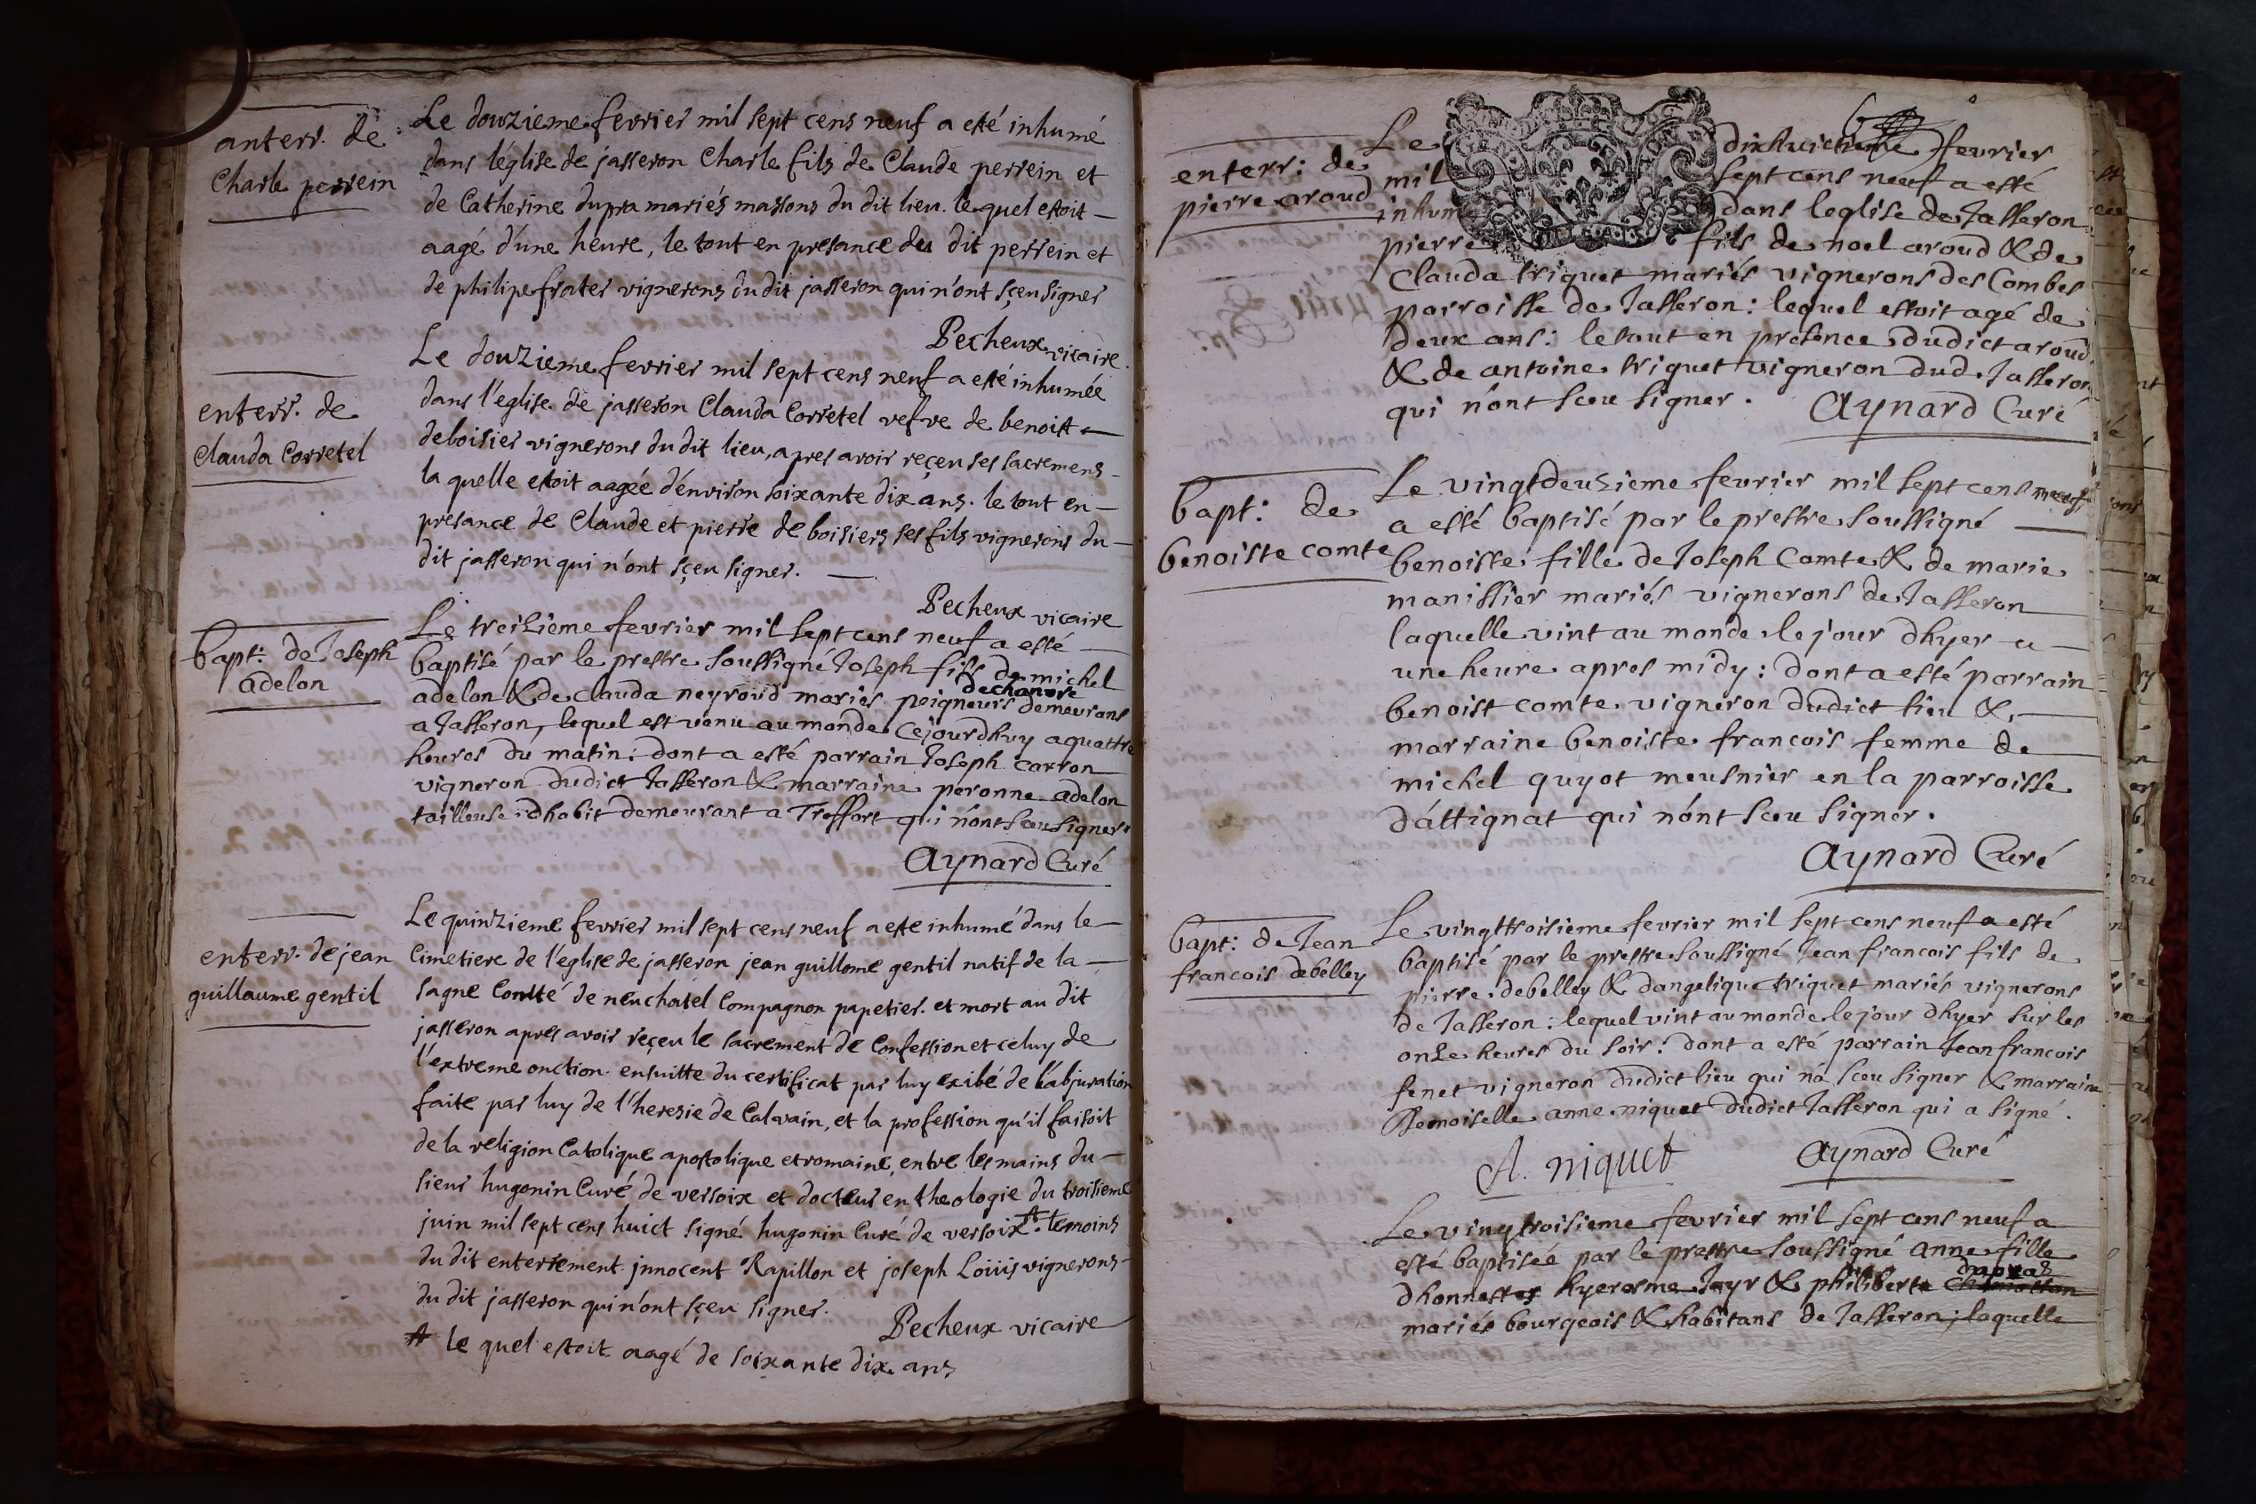 anterr. de
Charle perrein
Le douzieme fevrier mil sept cens neuf a esté inhumé
dans l'église de jasseron Charle fils de Claude perrein et
de Catherine dupra mariés massons du dit lieu. le quel estoit
aagé d'une heure, le tout en presance du dit perrein et
de philipe frater vignerons du dit jasseron qui n'ont sçeu signer
Pecheux vicaire
enterr. de
Clauda Corretel
Le douzieme fevrier mil sept cens neuf a esté inhumée
dans l'église de jasseron Clauda Corretel vefve de benoitt
deboisier vignerons du dit lieu, apres avoir reçeu ses sacremens
la quelle estoit aagée d'environ soixante dix ans. le tout en
presance de Claude et pierre de boisiers ses fils vignerons du
dit jasseron qui n'ont sçeu signer.
Pecheux vicaire
bapt: de Joseph
adelon
Le treizieme fevrier mil sept cens neuf a esté
baptisé par le prestre soussigné Joseph fils de michel
adelon & de clauda neyroud mariés peigneurs dechanvre demeurans
a Jasseron, lequel est venu au monde cejourdhuy a quattre
heures du matin: dont a esté parrain Joseph carron
vigneron dudict Jasseron & marraine peronne adelon
tailleuse dhabit demeurant a Treffort qui n'ont sceu signer.
Aynard Curé
enterr. de jean
guillaume gentil
Le quinzieme fevrier mil sept cens neuf a esté inhumé dans le
Cimetiere de l'église de jasseron jean guillome gentil natif de la
sagne Comté de neuchatel Compagnon papetier. et mort au dit
jasseron apres avoir reçeu le sacrement de Confession et celuy de
l'extreme onction. ensuitte du certificat par luy exibé de l'abjuration
faite par luy de l'heresie de Calvain, et la profession qu'il faisoit
de la religion Catolique apostolique et romaine, entre les mains du
sieur hugonin Curé de versoix et docteur en theologie du troisieme
juin mil sept cens huict signé hugonin Curé de versoix. A temoins
du dit enterrement jnnocent Rapillon et joseph Loüis vignerons
du dit jasseron qui n'ont sçeu signer.
Pecheux vicaire
A le quel estoit aagé de soixante dix ans
6
enterr: de
pierre aroud
Le dixhuictieme fevrier
mil sept cens neuf a esté
inhumé dans leglise de Jasseron
pierre fils de noel aroud & de
Clauda triquet mariés vignerons des Combes
parroisse de Jasseron: lequel estoit agé de
deux ans: le tout en presence dudict aroud
& de antoine triquet vigneron dud. Jasseron
qui n'ont sceu signer.
Aynard Curé
bapt: de
benoiste comte
Le vingtdeuzieme fevrier mil sept cens neuf
a esté baptisé par le prestre soussigné
benoiste fille de Joseph Comte & de marie
manissier mariés vignerons de Jasseron
laquelle vint au monde le jour dhyer a
une heure apres midy: dont a esté parrain
benoist comte vigneron dudict lieu &
marraine benoiste francois femme de
michel guyot meusnier en la parroisse
d'attignat qui n'ont sceu signer.
Aynard Curé
bapt: de Jean
francois debelley
Le vingttroisieme fevrier mil sept cens neuf a esté
baptisé par le prestre soussigné Jean francois fils de
pierre debelley & dangelique triquet mariés vignerons
de Jasseron: lequel vint au monde le jour dhyer sur les
onze heures du soir: dont a esté parrain Jean francois
fenet vigneron dudict lieu qui na sceu signer & marraine
Demoiselle anne niquet dudict Jasseron qui a signé.
A. niquet
Aynard Curé
Le vingttroisieme fevrier mil sept cens neuf a
esté baptisée par le prestre soussigné anne fille
dhonnestes hyerosme Jayr & philiberte
mariés bourgeois & habitans de Jasseron; laquelle